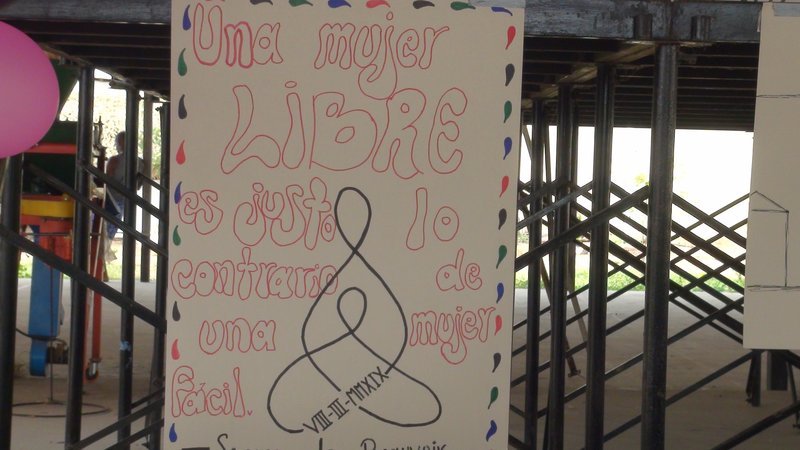 Una mujer
LIBRE
es justo lo
contrario de
una mujer
fácil.
VIII-III-MMXIX
Simone de Beauvoir